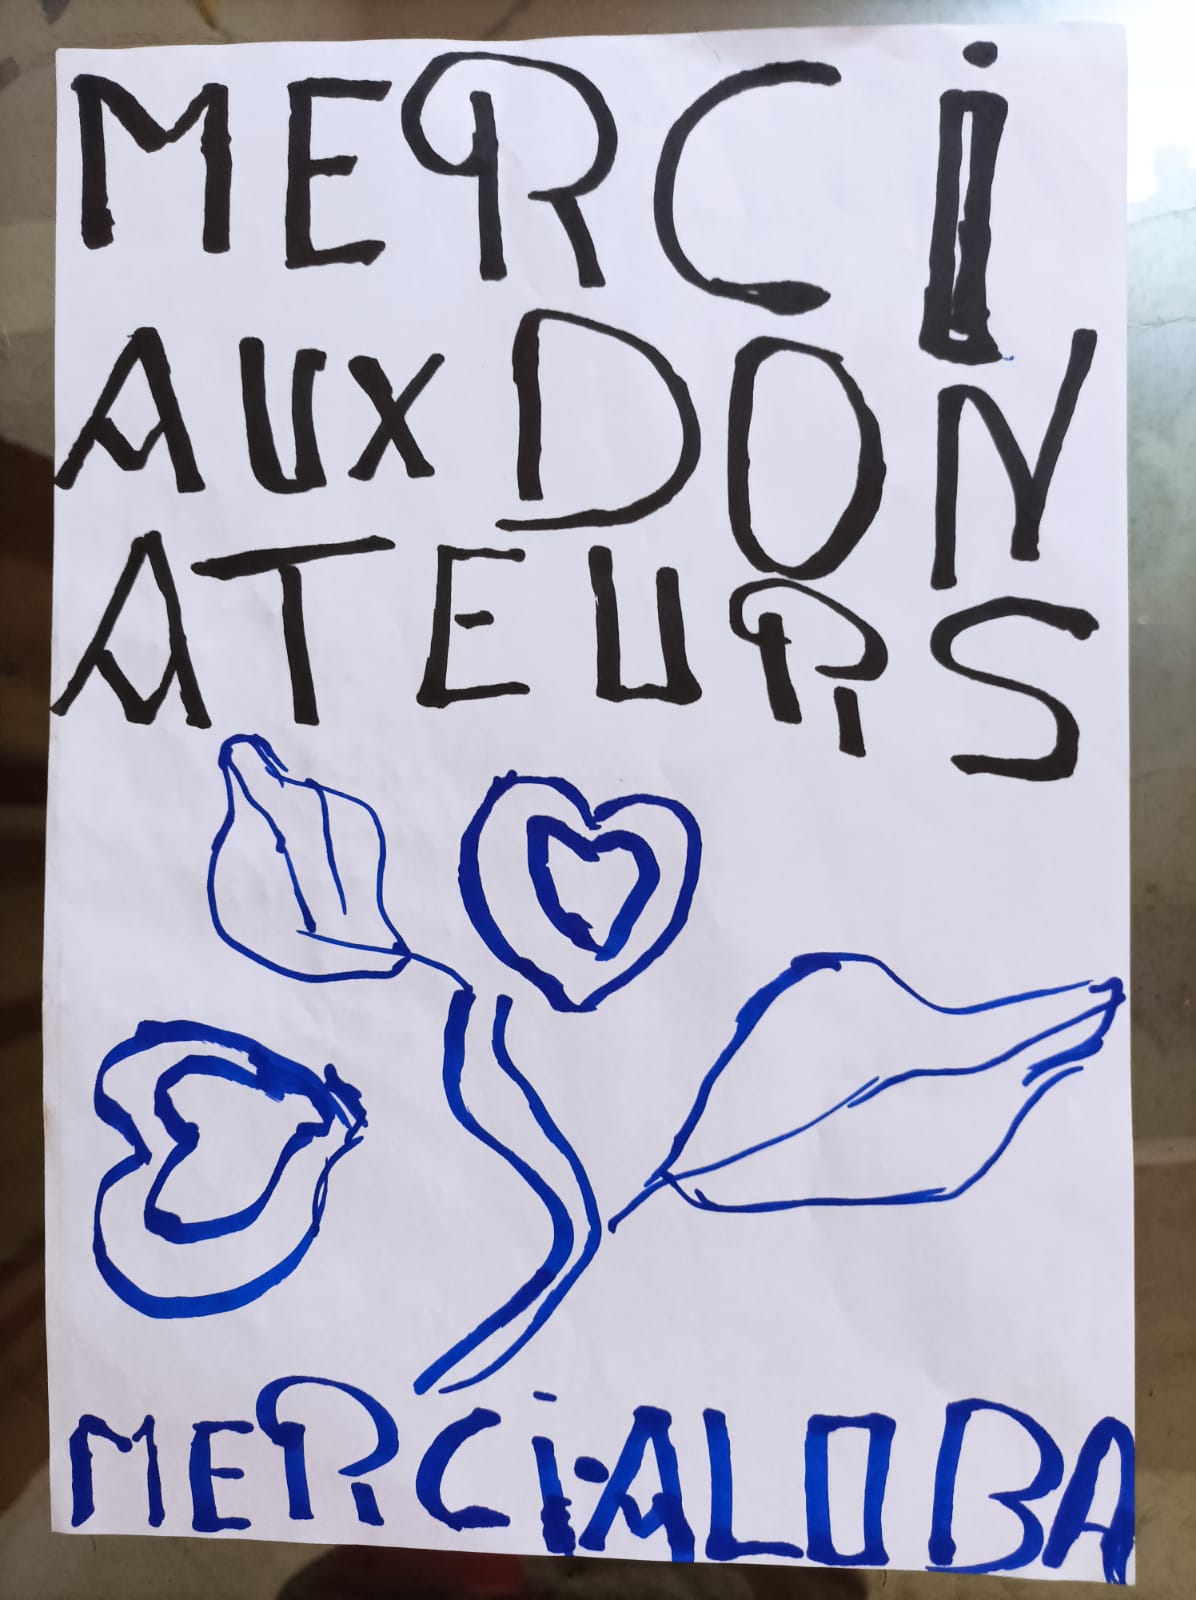 MERCi
AUX DON
ATEURS
MERCi.ALOBA